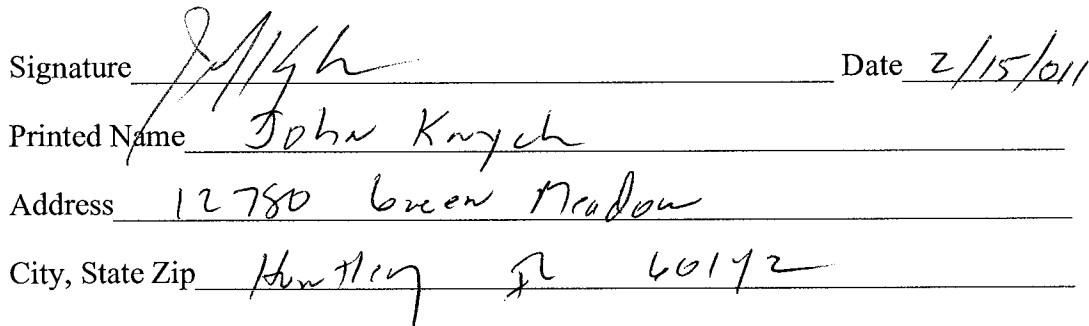 Signature Date 2/15/011
Printed Name John Knych
Address 12780 Green Meadow
City, State Zip Huntley IL 60142